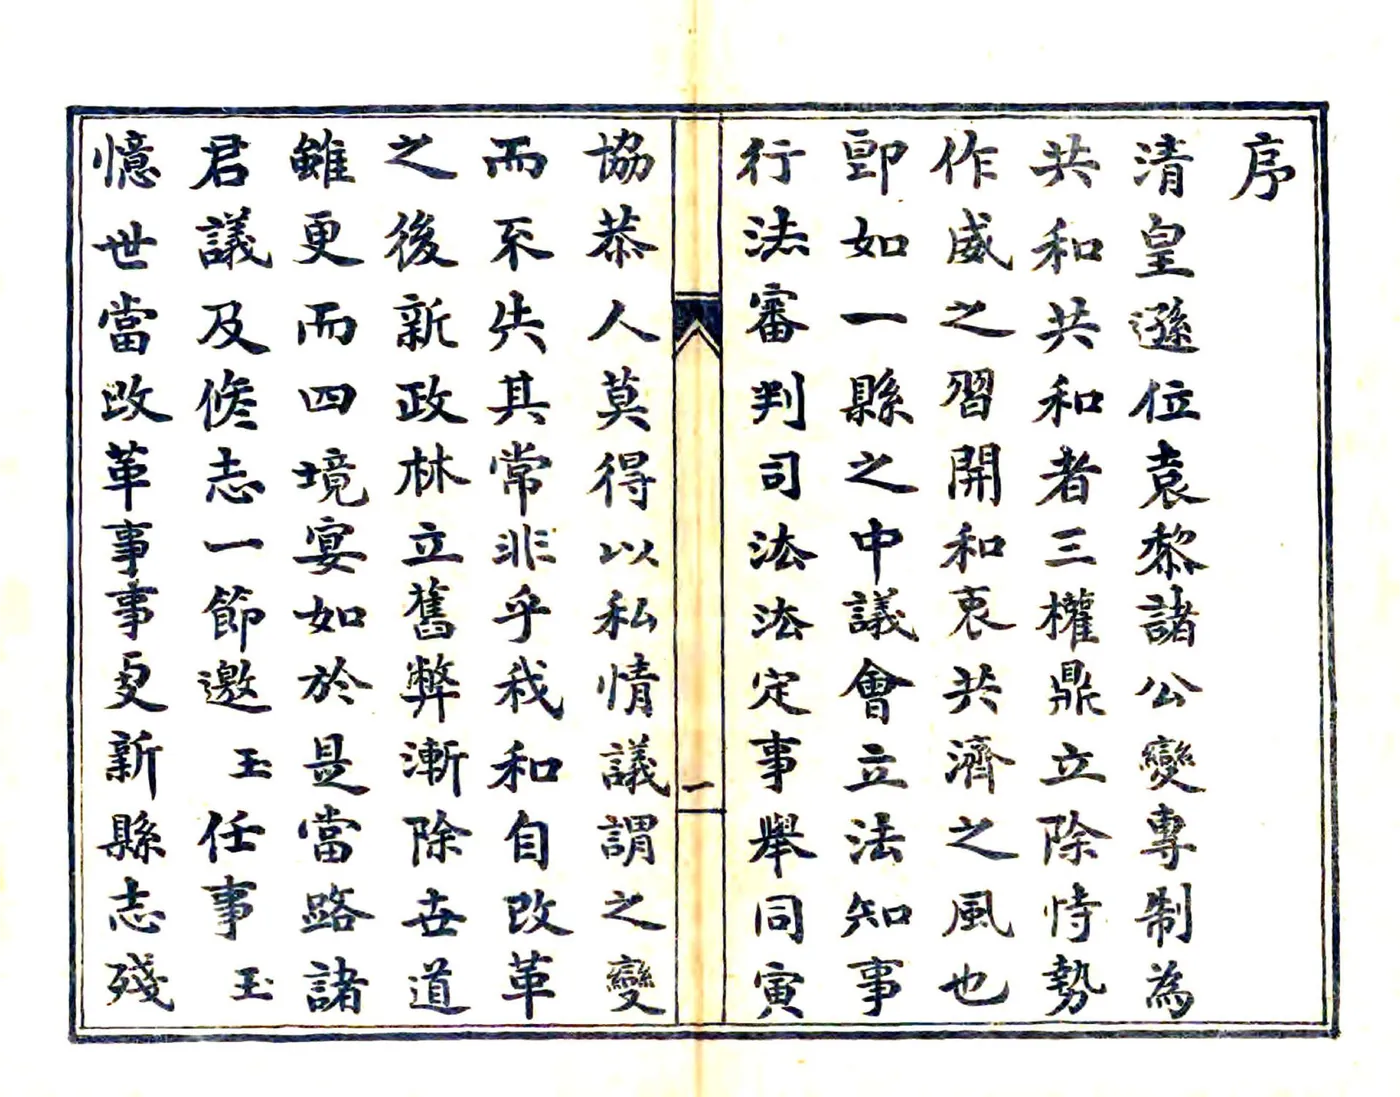 序
清皇遜位袁黎諸公變專制為
共和共和者三權鼎立除恃勢
作威之習開和衷共濟之風也
即如一縣之中議會立法知事
行法審判司法法定事舉同寅
一
協恭人莫得以私情議謂之變
而不失其常非乎我和自改革
之後新政林立舊弊漸除世道
雖更而四境宴如於是當路諸
君議及修志一節邀玉任事玉
憶世當改革事事更新縣志殘